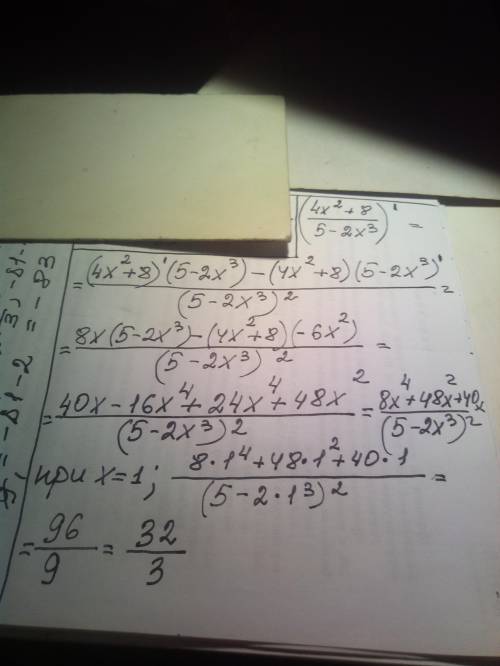 (4x²+8 / 5-2x³)' =
= (4x²+8)'(5-2x³)-(4x²+8)(5-2x³)' / (5-2x³)² =
= 8x(5-2x³)-(4x²+8)(-6x²) / (5-2x³)² =
= 40x-16x⁴+24x⁴+48x² / (5-2x³)² = 8x⁴+48x²+40x / (5-2x³)²
при x=1; 8·1⁴+48·1²+40·1 / (5-2·1³)² =
= 96/9 = 32/3
= -81-2 = -83